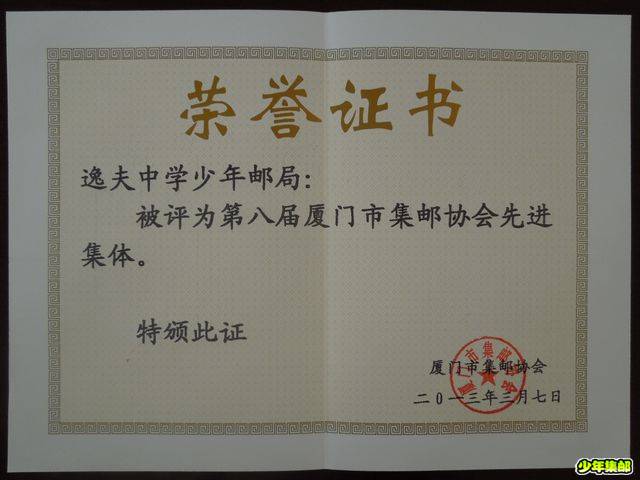 荣誉证书
逸夫中学少年邮局：
被评为第八届厦门市集邮协会先进
集体。
特颁此证
厦门市集邮协会
厦门市集邮协会
二0一三年三月七日
少年集邮